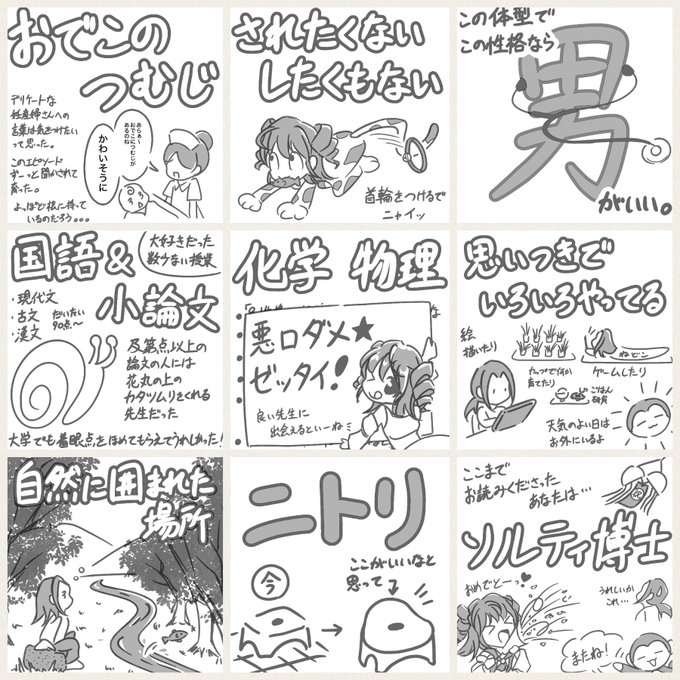 おでこの
つむじ
デリケートな
妊産婦さんへの
言葉は気をつけたい
って思った。
このエピソード
ずーっと聞かされて
育った。
よっぽど根に持って
いるのだろう。。。
あらぁ〜
おでこにつむじが
あるのね
かわいそうに
されたくない
したくもない
首輪をつけるで
ニャイッ
この体型で
この性格なら
男
がいい。
国語&
小論文
大好きだった
数少ない授業
・現代文
・古文
・漢文
だいたい
90点〜
及第点以上の
論文の人には
花丸の上の
カタツムリをくれる
先生だった
大学でも着眼点をほめてもらえてうれしかった!
化学 物理
悪口ダメ★
ゼッタイ!
良い先生に
出会えるといーね
思いつきで
いろいろやってる
絵
描いたり
カップで何か
育てたり
ねどこ
ゲームしたり
ごはん
研究
天気のよい日は
お外にいるよ
自然に囲まれた
場所
ニトリ
今
ここがいいなと
思って
ここまで
お読みくださった
あなたは…
ソルティ博士
おめでとーっ
うれしいか
これ…
またね!